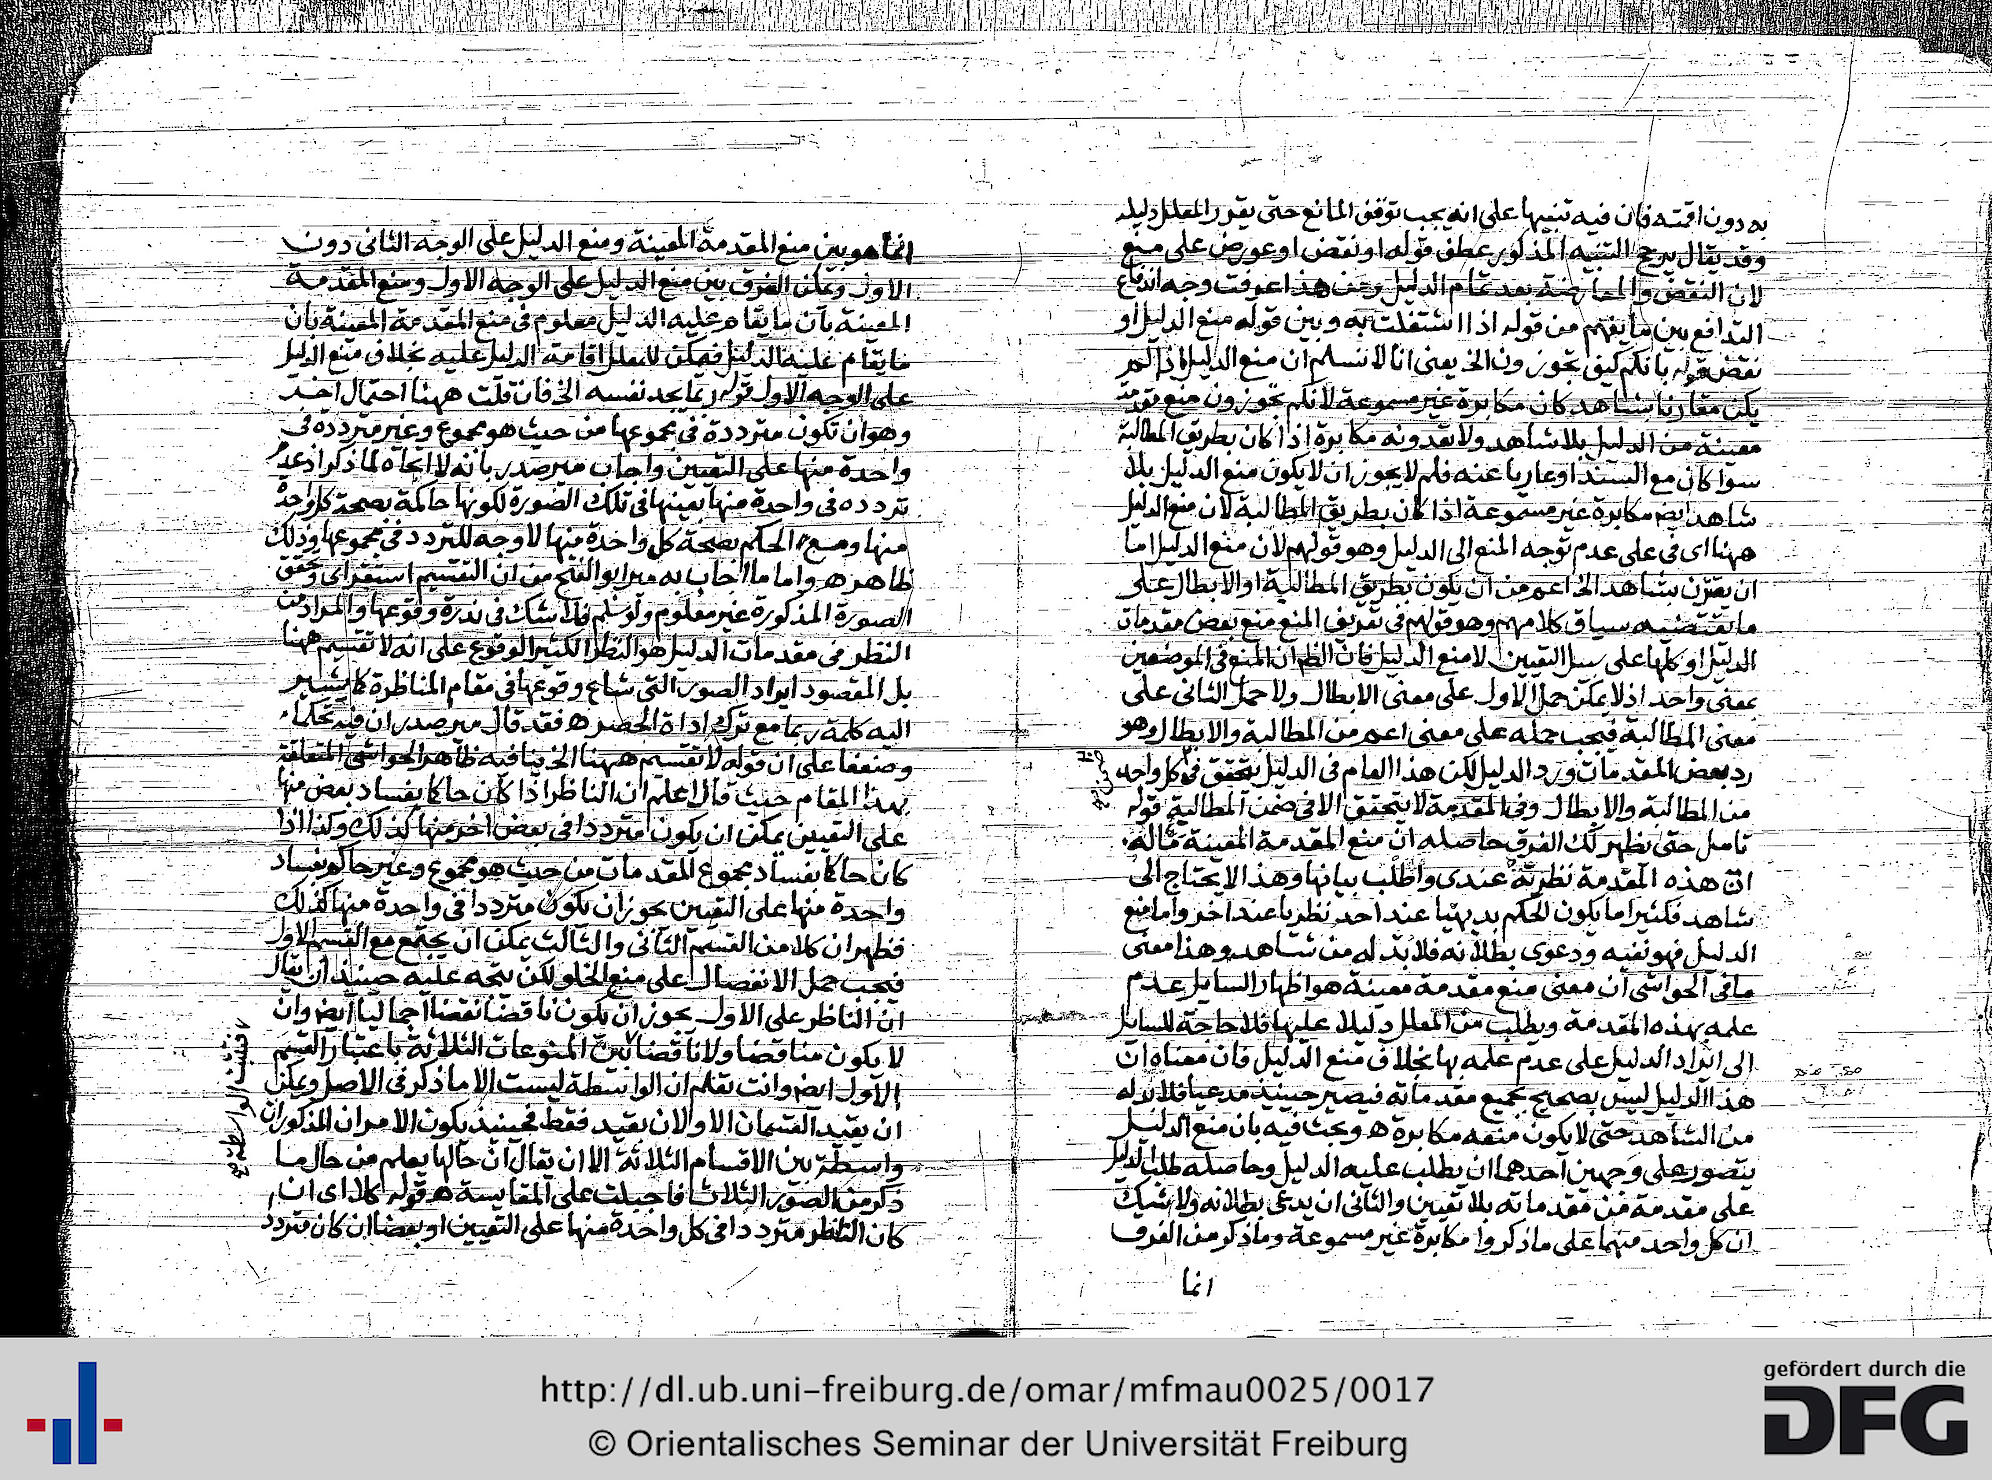 به دون اقمته فان فيه تنبيها على انه يجب توقف المانع حتى يقرر المعلل دليله
وقد يقال يرجح التنبيه المذكور عطف قوله او نقض او عورض على منع
لان النقض والمعارضة بعد تمام الدليل ومن هذا عرفت وجه اندفاع
التدافع بين ما يفهم من قوله اذا اشتغلت به وبين قوله منع الدليل او
نقض قوله بانكم كيف تجوزون الخ يعنى انا لا نسلم ان منع الدليل اذا لم
يكن مقارنا بشاهد كان مكابرة غير مسموعة لانكم تجوزون منع مقدمة
معينة من الدليل بلا شاهد ولا تعدونه مكابرة اذا كان بطريق المطالبة
سوا كان مع السند او عاريا عنه فلم لا يجوز ان لا يكون منع الدليل بلا
شاهد ايض مكابرة غير مسموعة اذا كان بطريق المطالبة لان منع الدليل
ههنا اى فى على عدم توجه المنع الى الدليل وهو قولهم لان منع الدليل اما
ان يقترن بشاهد الخ اعم من ان يكون بطريق المطالبة او الابطال على
ما يقتضيه سياق كلامهم وهو قولهم فى تعريف المنع منع بعض مقدمات
الدليل او كلها على سبيل التعيين لا منع الدليل فان الظ ان المنع فى الموضعين
بمعنى واحد اذ لا يمكن حمل الاول على معنى الابطال ولا حمل الثانى على
معنى المطالبة فيجب حمله على معنى اعم من المطالبة والابطال وهو
رد بعض المقدمات ورد الدليل لكن هذا العام فى الدليل يتحقق فى كل واحد
من المطالبة والابطال وفى المقدمة لا يتحقق الا فى ضمن المطالبة قوله
تامل حتى يظهر لك الفرق حاصله ان منع المقدمة المعينة مآله
ان هذه المقدمة نظرية عندى واطلب بيانها وهذا لا يحتاج الى
شاهد فكثيرا ما يكون الحكم بديهيا عند احد نظريا عند اخر واما منع
الدليل فهو نفيه ودعوى بطلانه فلا بد له من شاهد وهذا معنى
ما فى الحواشى ان معنى منع مقدمة معينة هو اظهار السايل عدم
علمه بهذه المقدمة ويطلب من المعلل دليلا عليها فلا حاجة للسايل
الى ايراد الدليل على عدم علمه بها بخلاف منع الدليل فان معناه ان
هذا الدليل ليس بصحيح بجميع مقدماته فيصير حينيذ مدعيا فلا بد له
من الشاهد حتى لا يكون منعه مكابرة ه وبحث فيه بان منع الدليل
يتصور على وجهين احدهما ان يطلب عليه الدليل وحاصله طلب الدليل
على مقدمة من مقدماته بلا تعيين والثانى ان يدعى بطلانه ولا شك
ان كل واحد منهما على ما ذكروا مكابرة غير مسموعة وما ذكر من الفرق
انما
انما هو بين منع المقدمة المعينة ومنع الدليل على الوجه الثانى دون
الاول ويمكن الفرق بين منع الدليل على الوجه الاول ومنع المقدمة
المعينة بان ما يقام عليه الدليل معلوم فى منع المقدمة المعينة بان
ما يقام عليه الدليل فيمكن للمعلل اقامة الدليل عليه بخلاف منع الدليل
على الوجه الاول قوله ربما يجد نفسه الخ فان قلت ههنا احتمال اخر
وهو ان تكون مترددة فى مجموعها من حيث هو مجموع وغير مترددة فى
واحدة منها على التعيين واجاب مير صدر بانه لا اتجاه لما ذكر اذ عدم
تردده فى واحدة منها بعينها فى تلك الصورة لكونها حاكمة بصحة كل واحدة
منها ومع الحكم بصحة كل واحدة منها لا وجه للتردد فى مجموعها وذلك
ظاهر ه واما ما اجاب به مير ابو الفتح من ان التقسيم استقراى وتحقق
الصورة المذكورة غير معلوم ولو سلم فلا شك فى ندرة وقوعها والمراد من
النظر فى مقدمات الدليل هو النظر الكثير الوقوع على انه لا تقسيم ههنا
بل المقصود ايراد الصور التى شاع وقوعها فى مقام المناظرة كما يشير
اليه كلمة ربما مع ترك اداة الحصر ه فقد قال مير صدر ان فيه تحكما
وضعفا على ان قوله لا تقسيم ههنا الخ ينافيه ظاهر الحواشى المتعلقة
بهذا المقام حيث قال اعلم ان الناظر اذا كان حاكما بفساد بعض منها
على التعيين يمكن ان يكون مترددا فى بعض اخر منها كذلك وكذا اذا
كان حاكما بفساد مجموع المقدمات من حيث هو مجموع وغير حاكم بفساد
واحدة منها على التعيين يجوز ان يكون مترددا فى واحدة منها كذلك
فظهر ان كلا من القسم الثانى والثالث يمكن ان يجتمع مع القسم الاول
فيجب حمل الانفصال على منع الخلو لكن يتجه عليه حينيذ ان يقال
ان الناظر على الاول يجوز ان يكون ناقضا نقضا اجماليا ايض وان
لا يكون مناقضا ولا ناقضا بين الممنوعات الثلاثة باعتبار القسم
الاول ايض وانت تعلم ان الواسطة ليست الا ما ذكر فى الاصل ويمكن
ان يقيد القسمان الاولان بقيد فقط فحينيذ يكون الامران المذكوران
واسطة بين الاقسام الثلاثة الا ان يقال ان حالها يعلم من حال ما
ذكر من الصور الثلاث فاحيلت على المقايسة ه قوله كلا اى ان
كان الناظر مترددا فى كل واحدة منها على التعيين او بعضا ان كان مترددا
فتثبت الواسطة صح
http://dl.ub.uni-freiburg.de/omar/mfmau0025/0017
© Orientalisches Seminar der Universität Freiburg
gefördert durch die
DFG